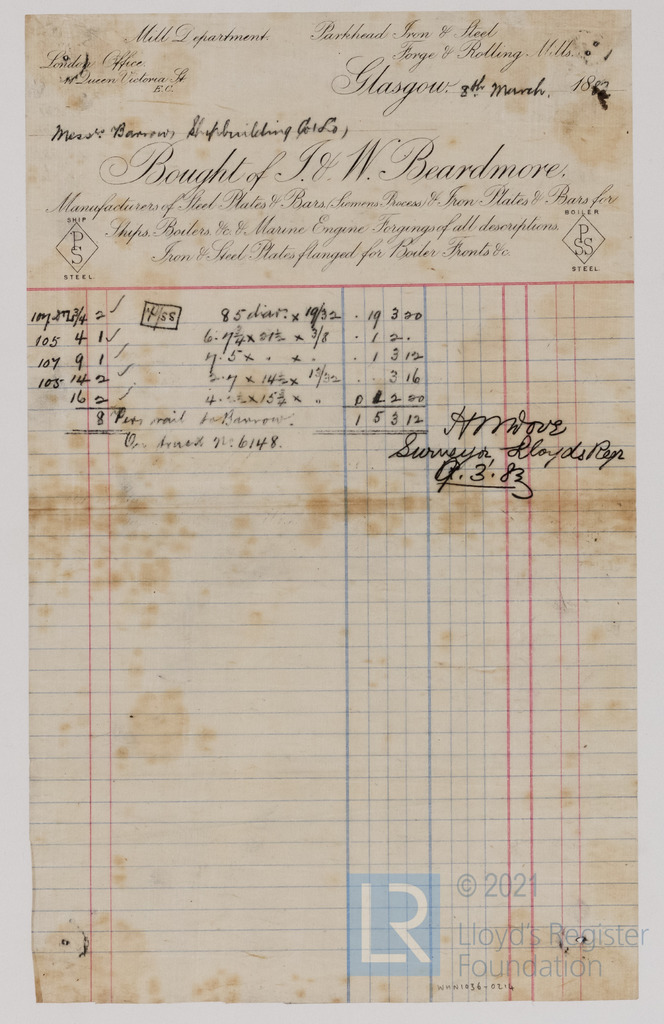 Mill Department. Parkhead Iron & Steel
Forge & Rolling Mills.
London Office.
Queen Victoria St
E.C.
Glasgow, 8th March. 188
Messrs. Barrow, Shipbuilding Co Lo,
Bought of I. & W. Beardmore.
Manufacturers of Steel Plates & Bars, (Siemens Process) & Iron Plates & Bars for
Ships, Boilers, &c. & Marine Engine Forgings of all descriptions.
Iron & Steel Plates flanged for Boiler Fronts &c.
SHIP
PS
STEEL
BOILER
PSS
STEEL
2 ✓ 85 diar. x 19/32 . 19 3 20
105 4 1 ✓ x 3/8 . 1 2 .
107 9 1 ✓ 7. 5 x " x " . 1 3 12
105 14 2 ✓ x 14½ x 13/32 3 16
16 2 ✓ x 15¾ x " 2 20
8 Per rail to Barrow. 1 5 3 12
On truck No. 6148.
H M Dove
Surveyor, Lloyds Regr
9. 3. 83
LR
© 2021
Lloyd's Register
Foundation
WHN1036-0214